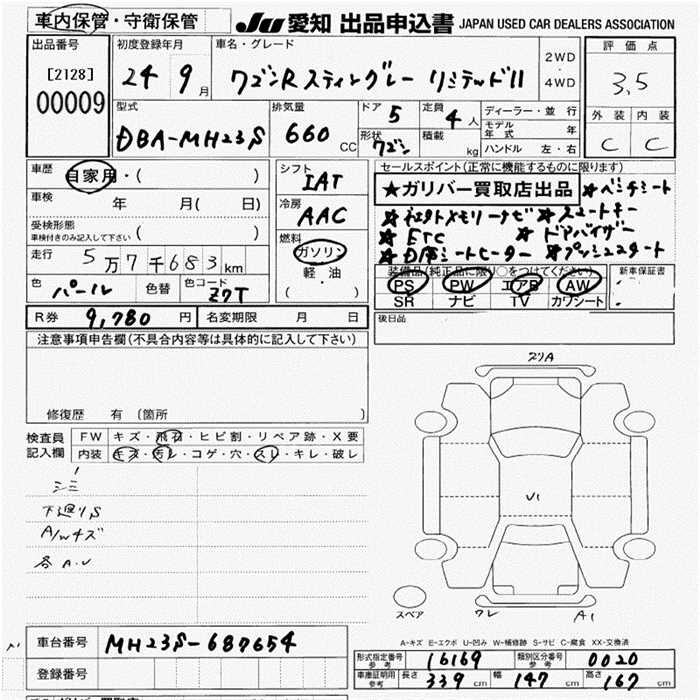 車内保管・守衛保管
JU 愛知 出品申込書 JAPAN USED CAR DEALERS ASSOCIATION
出品番号
[2128]
00009
初度登録年月
24 9月
車名・グレード
ワゴンR スティングレー リミテッドII
2WD・4WD
評価点
3,5
外装 内装
C C
型式
DBA-MH23S
排気量
660 CC
ドア 5
形状 ワゴン
定員 4人
積載 kg
ディーラー・並行
モデル年式 年
ハンドル 左・右
車歴 自家用・( )
車検 年 月( 日)
受検形態
車検付きのみ記入して下さい ( )
走行 5万7千683km
色 パール 色替 色コード Z7T
シフト
IAT
冷房
AAC
燃料
ガソリン
軽・油
( )
セールスポイント(正常に機能するものに限ります)
★ガリバー買取店出品 ★ベンチシート
★社外メモリーナビ ★スマートキー
★ETC ★ドアバイザー
★D席シートヒーター ★プッシュスタート
装備品(純正品に限り○をつけてください)
PS PW エアB AW
SR ナビ TV カワシート
新車保証書
R券 9,780円 名変期限 月 日
後日品
注意事項申告欄(不具合内容等は具体的に記入して下さい)
修復歴 有 〔箇所 〕
検査員記入欄
FW キズ・飛石・ヒビ割・リペア跡・X要
内装 キズ・汚レ・コゲ・穴・スレ・キレ・破レ
シミ
下廻りS
A/Wキズ
各A.U
U1
スペア
A1
A-キズ E-エクボ U-凹み W-補修跡 S-サビ C-腐食 XX-交換済
車台番号 MH23S-687654
登録番号
形式指定番号参考 16169 類別区分番号参考 0020
車庫証明用参考 長さ 339cm 幅 147cm 高さ 167cm